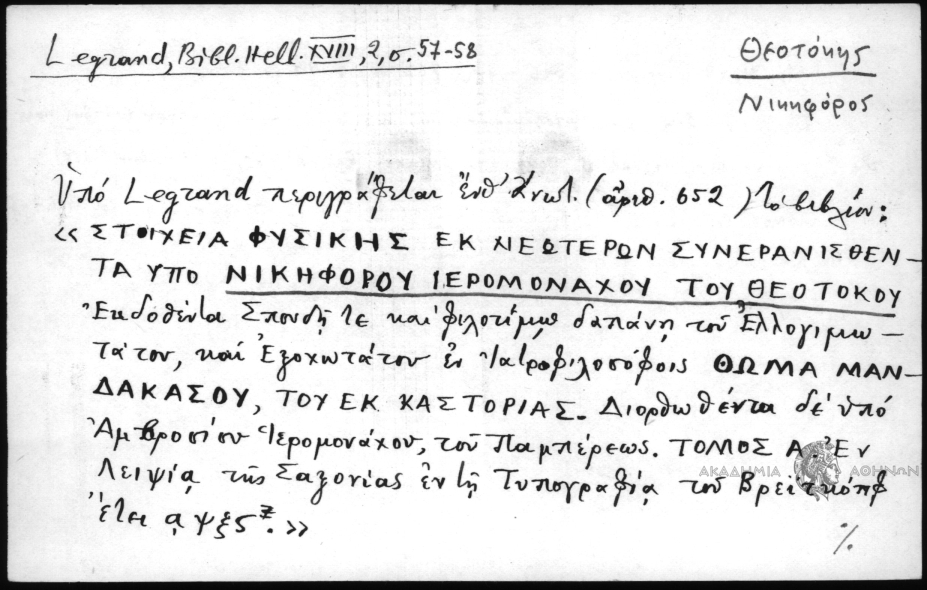 Legrand, Bibl. Hell. XVIII, 2, σ. 57-58
Θεοτόκης
Νικηφόρος
Ὑπό Legrand περιγράφεται ἔνθ' ἀνωτ. (ἀριθ. 652) το βιβλίον:
« ΣΤΟΙΧΕΙΑ ΦΥΣΙΚΗΣ ΕΚ ΝΕΩΤΕΡΩΝ ΣΥΝΕΡΑΝΙΣΘΕΝ-
ΤΑ ΥΠΟ ΝΙΚΗΦΟΡΟΥ ΙΕΡΟΜΟΝΑΧΟΥ ΤΟΥ ΘΕΟΤΟΚΟΥ
Ἐκδοθέντα Σπουδῇ τε καί φιλοτίμῳ δαπάνῃ τοῦ Ἐλλογιμω-
τάτου, καί Ἐξοχωτάτου ἐν Ἰατροφιλοσόφοις ΘΩΜΑ ΜΑΝ-
ΔΑΚΑΣΟΥ, ΤΟΥ ΕΚ ΚΑΣΤΟΡΙΑΣ. Διορθωθέντα δέ ὑπό
Ἀμβροσίου Ἱερομονάχου, τοῦ Παμπέρεως. ΤΟΜΟΣ Α. Ἐν
Λειψίᾳ τῆς Σαξονίας ἐν τῇ Τυπογραφίᾳ τοῦ Βρεῖτκόπφ
ἔτει αψξς. »
ΑΚΑΔΗΜΙΑ ΑΘΗΝΩΝ
%